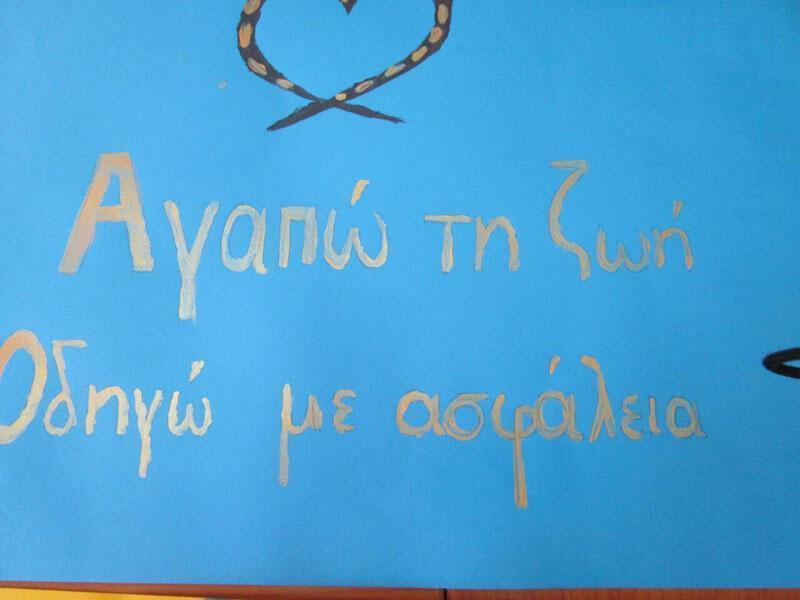 Αγαπώ τη ζωή
Οδηγώ με ασφάλεια